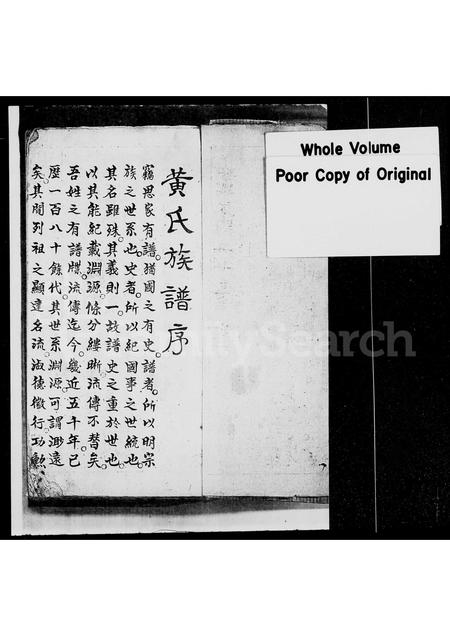 Whole Volume
Poor Copy of Original
黃氏族譜序
竊思家有譜。猶國之有史。譜者。所以明宗
族之世系也。史者。所以紀國事之世統也。
其名雖殊。其義則一。故譜史之重於世也。
以其能紀載淵源。條分縷晰。流傳不替矣。
吾姓之有譜牒。流傳迄今。幾近五千年。已
歷一百八十餘代。其世系淵源。可謂渺遠
矣。其間列祖之顯達名流。淑德徽行。功勲
FamilySearch